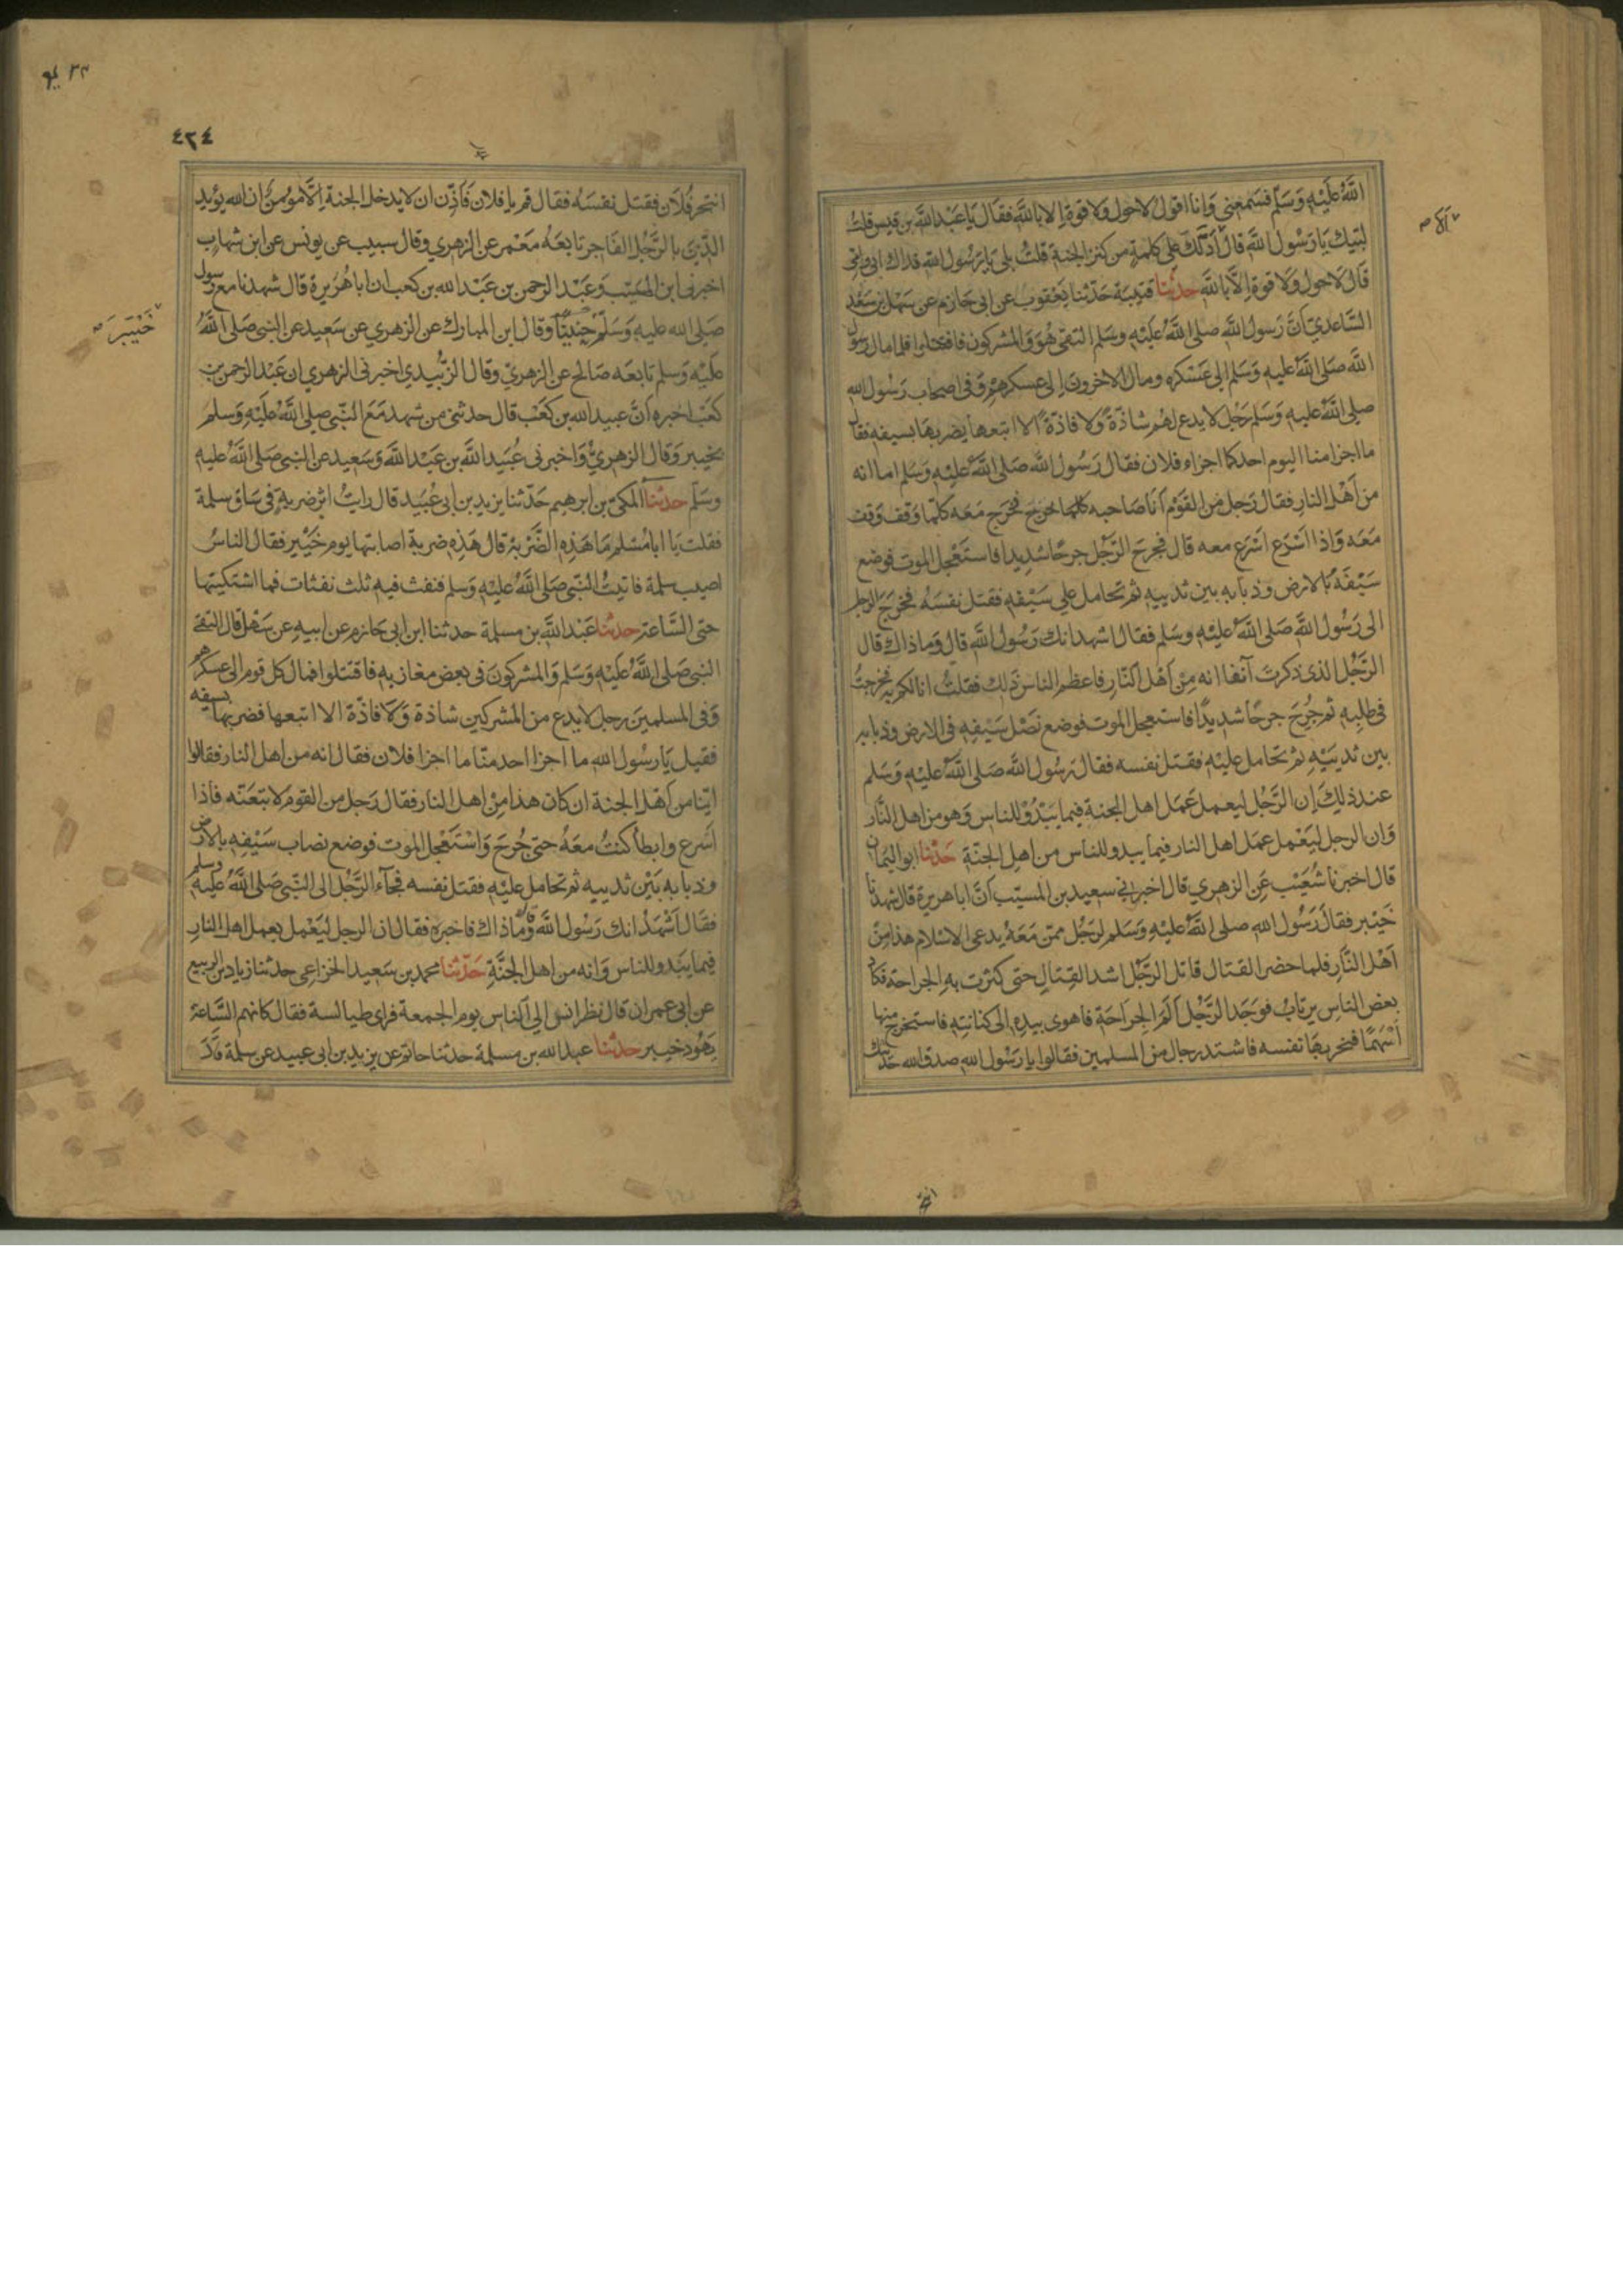 الله عليه وسلم فسمعني وانا اقول لا حول ولا قوة الا بالله فقال يا عبد الله بن قيس قلت
لبيك يا رسول الله قال ادلك على كلمة من كنز الجنة قلت بلى يا رسول الله فداك ابي وامي
الا ادلك صح
قال لا حول ولا قوة الا بالله حدثنا قتيبة حدثنا يعقوب عن ابي حازم عن سهل بن سعد
الساعدي ان رسول الله صلى الله عليه وسلم التقى هو والمشركون فاقتتلوا فلما مال رسول
الله صلى الله عليه وسلم الى عسكره ومال الاخرون الى عسكرهم وفي اصحاب رسول الله
صلى الله عليه وسلم رجل لا يدع لهم شاذة ولا فاذة الا اتبعها يضربها بسيفه فقال
ما اجزا منا اليوم احد كما اجزاء فلان فقال رسول الله صلى الله عليه وسلم اما انه
من اهل النار فقال رجل من القوم انا صاحبه كلما خرج فخرج معه كلما وقف وقف
معه واذا اسرع اسرع معه قال فجرح الرجل جرحا شديدا فاستعجل الموت فوضع
سيفه بالارض وذبابه بين ثدييه ثم تحامل على سيفه فقتل نفسه فخرج الرجل
الى رسول الله صلى الله عليه وسلم فقال اشهد انك رسول الله قال وما ذاك قال
الرجل الذي ذكرت آنفا انه من اهل النار فاعظم الناس ذلك فقلت انا لكم به فخرجت
في طلبه ثم جرح جرحا شديدا فاستعجل الموت فوضع نصل سيفه في الارض وذبابه
بين ثدييه ثم تحامل عليه فقتل نفسه فقال رسول الله صلى الله عليه وسلم
عند ذلك ان الرجل ليعمل عمل اهل الجنة فيما يبدو للناس وهو من اهل النار
وان الرجل ليعمل عمل اهل النار فيما يبدو للناس من اهل الجنة حدثنا ابو اليمان
قال اخبرنا شعيب عن الزهري قال اخبرني سعيد بن المسيب ان ابا هريرة قال شهدنا
خيبر فقال رسول الله صلى الله عليه وسلم لرجل ممن معه يدعي الاسلام هذا من
اهل النار فلما حضر القتال قاتل الرجل اشد القتال حتى كثرت به الجراحة فكاد
بعض الناس يرتاب فوجد الرجل الم الجراحة فاهوى بيده الى كنانته فاستخرج منها
اسهما فنحر بها نفسه فاشتد رجال من المسلمين فقالوا يا رسول الله صدق الله حديثك
٤٢٤
انتحر فلان فقتل نفسه فقال قم يا فلان فاذن ان لا يدخل الجنة الا مؤمن ان الله يؤيد
الدين بالرجل الفاجر تابعه معمر عن الزهري وقال شبيب عن يونس عن ابن شهاب
اخبرني ابن المسيب وعبد الرحمن بن عبد الله بن كعب ان ابا هريرة قال شهدنا مع رسول
صلى الله عليه وسلم حنينا وقال ابن المبارك عن الزهري عن سعيد عن النبي صلى الله
خيبر صح
عليه وسلم تابعه صالح عن الزهري وقال الزبيدي اخبرني الزهري ان عبد الرحمن بن
كعب اخبره ان عبيد الله بن كعب قال حدثني من شهد مع النبي صلى الله عليه وسلم
بخيبر وقال الزهري واخبرني عبيد الله بن عبد الله وسعيد عن النبي صلى الله عليه
وسلم حدثنا المكي بن ابرهيم حدثنا يزيد بن ابي عبيد قال رايت اثر ضربة في ساق سلمة
فقلت يا ابا مسلم ما هذه الضربة قال هذه ضربة اصابتها يوم خيبر فقال الناس
اصيب سلمة فاتيت النبي صلى الله عليه وسلم فنفث فيه ثلث نفثات فما اشتكيتها
حتى الساعة حدثنا عبد الله بن مسلمة حدثنا ابن ابي حازم عن ابيه عن سهل قال التقى
النبي صلى الله عليه وسلم والمشركون في بعض مغازيه فاقتتلوا فمال كل قوم الى عسكرهم
وفي المسلمين رجل لا يدع من المشركين شاذة ولا فاذة الا اتبعها فضربها بسيفه
فقيل يا رسول الله ما اجزا احد منا ما اجزا فلان فقال انه من اهل النار فقالوا
اينا من اهل الجنة ان كان هذا من اهل النار فقال رجل من القوم لاتبعنه فاذا
اسرع وابطأ كنت معه حتى جرح واستعجل الموت فوضع نصاب سيفه بالارض
وذبابه بين ثدييه ثم تحامل عليه فقتل نفسه فجاء الرجل الى النبي صلى الله عليه وسلم
فقال اشهد انك رسول الله قال وما ذاك فاخبره فقال ان الرجل ليعمل بعمل اهل النار
فيما يبدو للناس وانه من اهل الجنة حدثنا محمد بن سعيد الخزاعي حدثنا زياد بن الربيع
عن ابي عمران قال نظر انس الى الناس يوم الجمعة فراى طيالسة فقال كانهم الساعة
يهود خيبر حدثنا عبد الله بن مسلمة حدثنا حاتم عن يزيد بن ابي عبيد عن سلمة قال